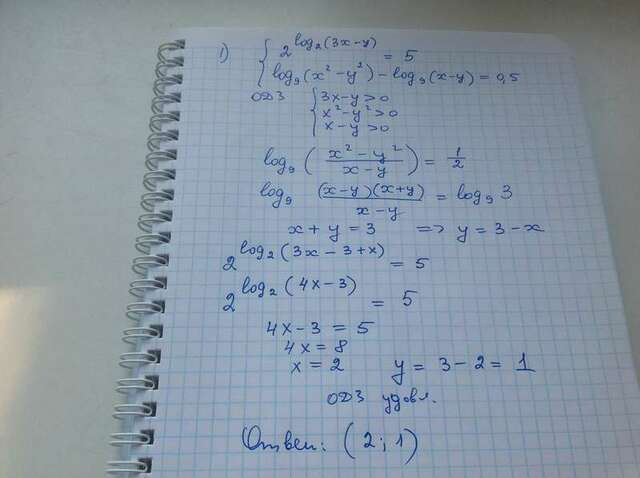 1) { 2^(log₂(3x-y)) = 5
{ log₉(x²-y²) - log₉(x-y) = 0,5
ОДЗ { 3x-y>0
{ x²-y²>0
{ x-y>0
log₉ ((x²-y²)/(x-y)) = 1/2
log₉ ((x-y)(x+y))/(x-y) = log₉ 3
x+y=3 => y=3-x
2^(log₂(3x-3+x)) = 5
2^(log₂(4x-3)) = 5
4x-3 = 5
4x=8
x=2 y=3-2=1
ОДЗ удовл.
Ответ: (2; 1)